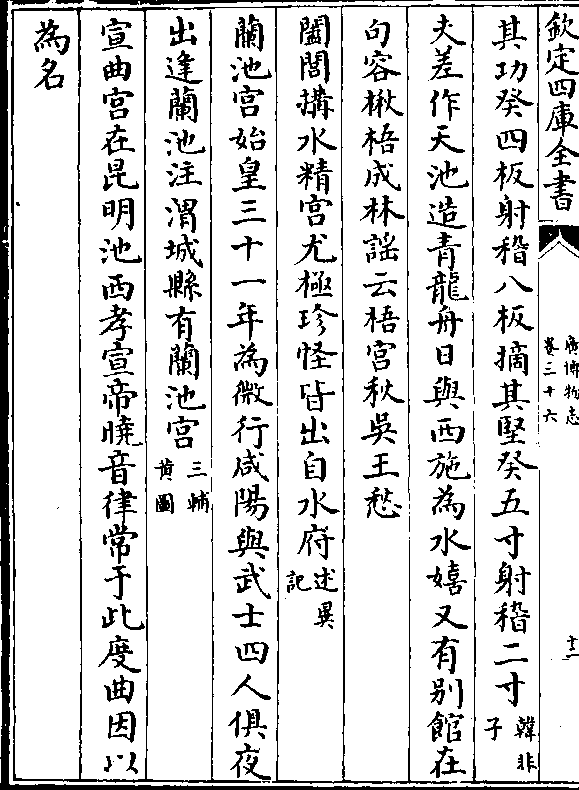 欽定四庫全書
廣博物志
卷三十六
十二
其功癸四板射稽八板擿其堅癸五寸射稽二寸韓非子
夫差作天池造青龍舟日與西施為水嬉又有别館在
句容楸梧成林謡云梧宫秋吳王愁
闔閭搆水精宫尤極珍怪皆出自水府述異記
蘭池宫始皇三十一年為微行咸陽與武士四人俱夜
出逢蘭池注渭城縣有蘭池宫三輔黄圖
宣曲宫在昆明池西孝宣帝曉音律常于此度曲因以
為名